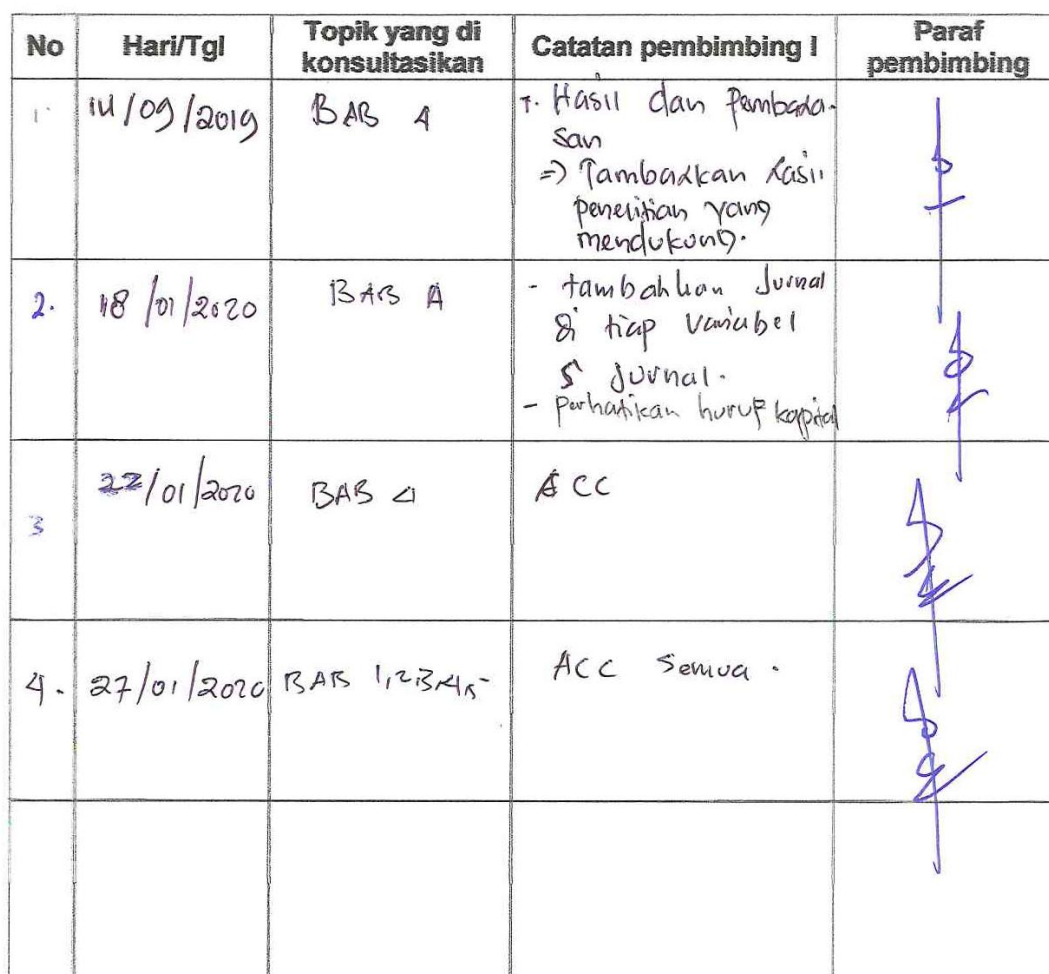 No Hari/Tgl Topik yang di konsultasikan Catatan pembimbing I Paraf pembimbing
1. 14/09/2019 BAB 4 1. Hasil dan Pembaha-
san
=> Tambahkan hasil
penelitian yang
mendukung.
2. 18/01/2020 BAB 4 - tambahkan Jurnal
di tiap Variabel
5 Jurnal.
- perhatikan huruf kapital
3 22/01/2020 BAB 4 ACC
4. 27/01/2020 BAB 1,2,3,4,5 ACC Semua.